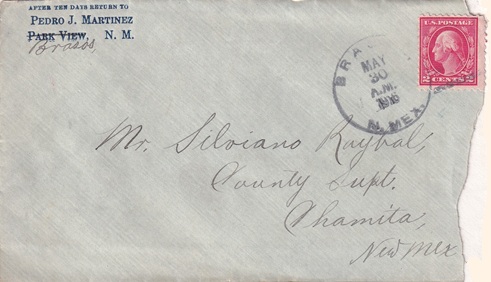 AFTER TEN DAYS RETURN TO
PEDRO J. MARTINEZ
PARK VIEW, N. M.
Brazos,
U.S. POSTAGE
2 CENTS 2
MAY
30
A.M.
N. MEX.
Mr. Silviano Roybal,
County Supt.
Chamita,
New Mex